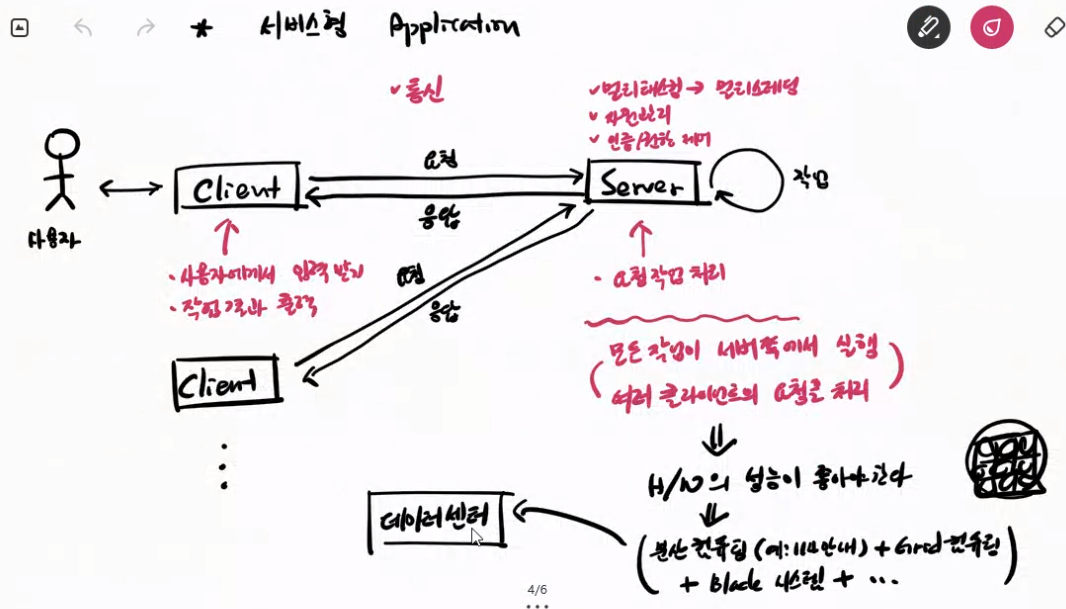 * 서버스형 Application
✓ 통신
✓ 멀티태스킹 → 멀티스레딩
✓ 자원관리
✓ 인증/권한 제어
사용자
Client
요청
응답
Server
작업
• 사용자에게서 입력 받기
• 작업결과 출력
요청
응답
• 요청작업 처리
Client
( 모든 작업이 서버쪽에서 실행
여러 클라이언트의 요청을 처리 )
H/W의 성능이 좋아야 한다
데이터센터
( 분산 컴퓨팅 (예:114안내) + Grid 컴퓨팅
+ Blade 시스템 + ... )
4/6